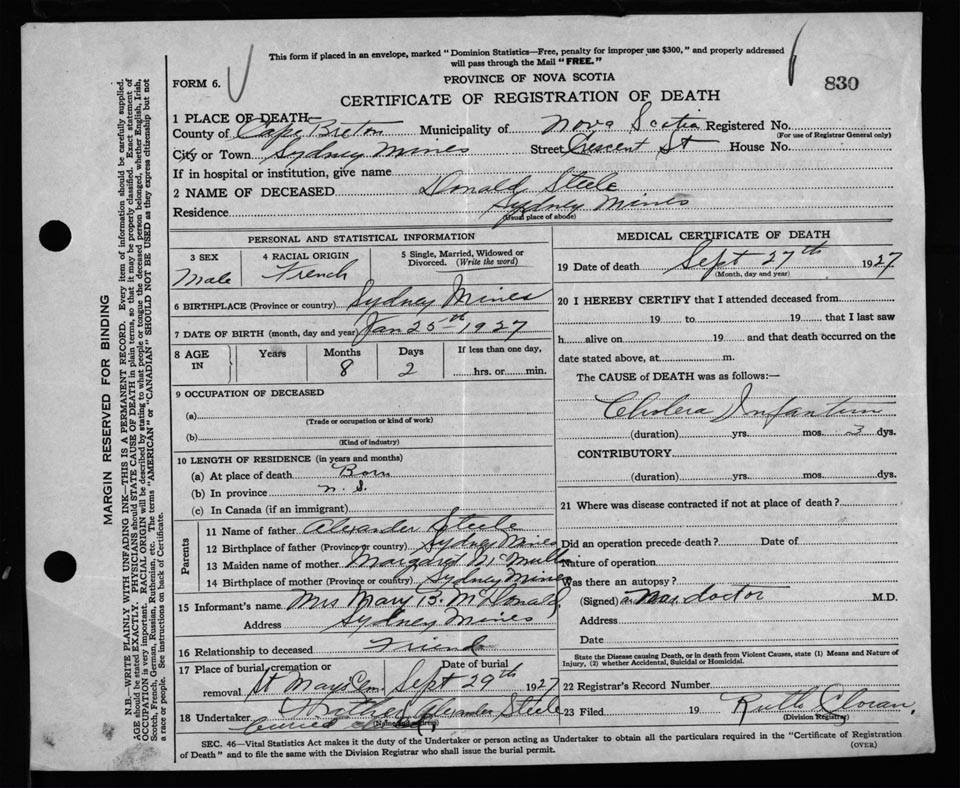 This form if placed in an envelope, marked "Dominion Statistics—Free, penalty for improper use $300," and properly addressed
will pass through the Mail "FREE."
FORM 6.
PROVINCE OF NOVA SCOTIA
830
CERTIFICATE OF REGISTRATION OF DEATH
1 PLACE OF DEATH—
County of Cape Breton Municipality of Nova Scotia Registered No.
(For use of Registrar General only)
City or Town Sydney Mines Street Crescent St House No.
If in hospital or institution, give name
2 NAME OF DECEASED Donald Steele
Residence Sydney Mines
(Usual place of abode)
MARGIN RESERVED FOR BINDING
N.B.—WRITE PLAINLY WITH UNFADING INK—THIS IS A PERMANENT RECORD. Every item of information should be carefully supplied.
AGE should be stated EXACTLY. PHYSICIANS should STATE CAUSE OF DEATH in plain terms, so that it may be properly classified. Exact statement of
OCCUPATION is very important. RACIAL ORIGIN will be described by stating to what people or tongue the deceased person belonged, whether English, Irish,
Scotch, French, German, Russian, Ruthenian, etc. The terms "AMERICAN" or "CANADIAN" SHOULD NOT BE USED as they express citizenship but not
a race or people. See instructions on back of Certificate.
PERSONAL AND STATISTICAL INFORMATION
3 SEX
Male
4 RACIAL ORIGIN
French
5 Single, Married, Widowed or
Divorced. (Write the word)
6 BIRTHPLACE (Province or country) Sydney Mines
7 DATE OF BIRTH (month, day and year) Jan 25th 1927
8 AGE IN
Years Months Days If less than one day,
8 2 hrs. or min.
9 OCCUPATION OF DECEASED
(a)
(Trade or occupation or kind of work)
(b)
(Kind of industry)
10 LENGTH OF RESIDENCE (in years and months)
(a) At place of death Born
(b) In province N.S.
(c) In Canada (if an immigrant)
Parents
11 Name of father Alexander Steele
12 Birthplace of father (Province or country) Sydney Mines
13 Maiden name of mother Margaret
14 Birthplace of mother (Province or country) Sydney Mines
15 Informant's name Mrs Mary B. McDonald
Address Sydney Mines
16 Relationship to deceased Friend
17 Place of burial, cremation or Date of burial
removal St Mary Cem. Sept 29th 1927
18 Undertaker Father Alexander Steele
(Name and address)
MEDICAL CERTIFICATE OF DEATH
19 Date of death Sept 27th 1927
(Month, day and year)
20 I HEREBY CERTIFY that I attended deceased from
19 to 19 that I last saw
h alive on 19 and that death occurred on the
date stated above, at m.
The CAUSE of DEATH was as follows:—
Cholera Infantum
(duration) yrs. mos. 3 dys.
CONTRIBUTORY
(duration) yrs. mos. dys.
21 Where was disease contracted if not at place of death?
Did an operation precede death? Date of
Nature of operation
Was there an autopsy?
(Signed) doctor M.D.
Address
Date
State the Disease causing Death, or in death from Violent Causes, state (1) Means and Nature of
Injury, (2) whether Accidental, Suicidal or Homicidal.
22 Registrar's Record Number
23 Filed 19 Ruth Cloran,
(Division Registrar)
SEC. 46—Vital Statistics Act makes it the duty of the Undertaker or person acting as Undertaker to obtain all the particulars required in the "Certificate of Registration
of Death" and to file the same with the Division Registrar who shall issue the burial permit.
(OVER)